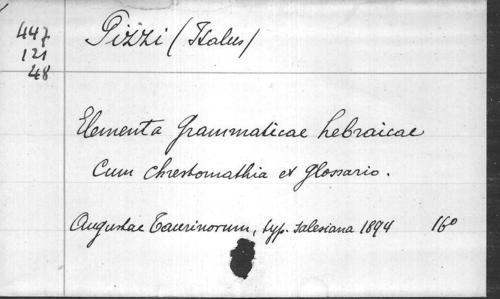 447
121
48
Pizzi (Italus)
Elementa grammaticae hebraicae
Cum chrestomathia et glossario.
Augustae Taurinorum, typ. Salesiana 1894 16°